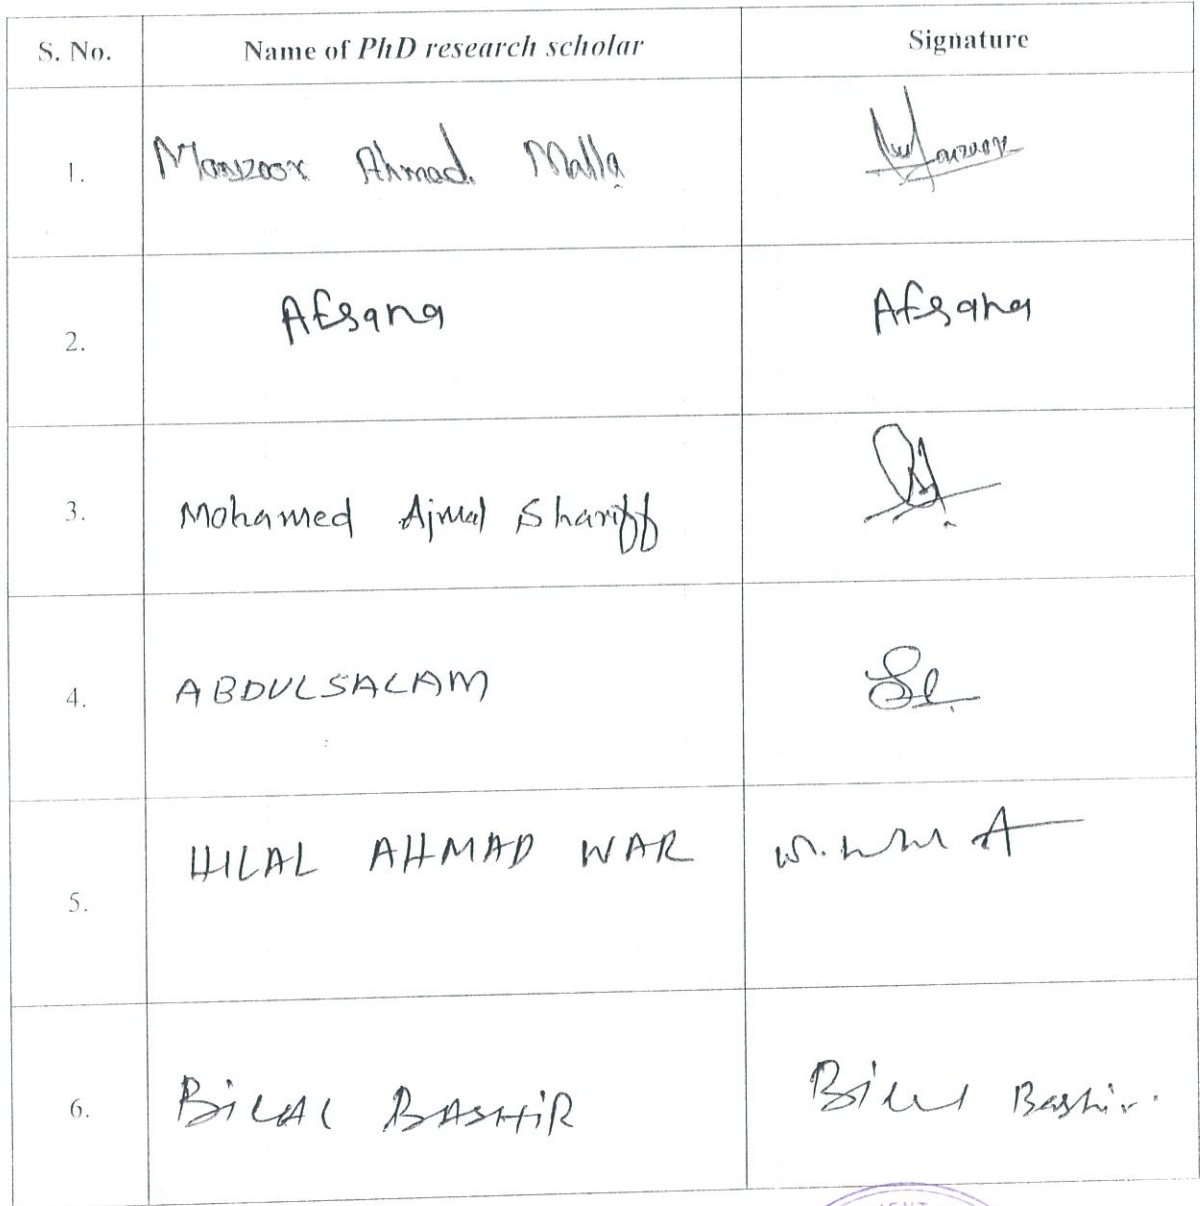 S. No. Name of PhD research scholar Signature
1. Manzoor Ahmad Malla Manzoor
2. Afsana Afsana
3. Mohamed Ajmal Shariff
4. ABDULSALAM
5. HILAL AHMAD WAR
6. BILAL BASHIR Bilal Bashir.